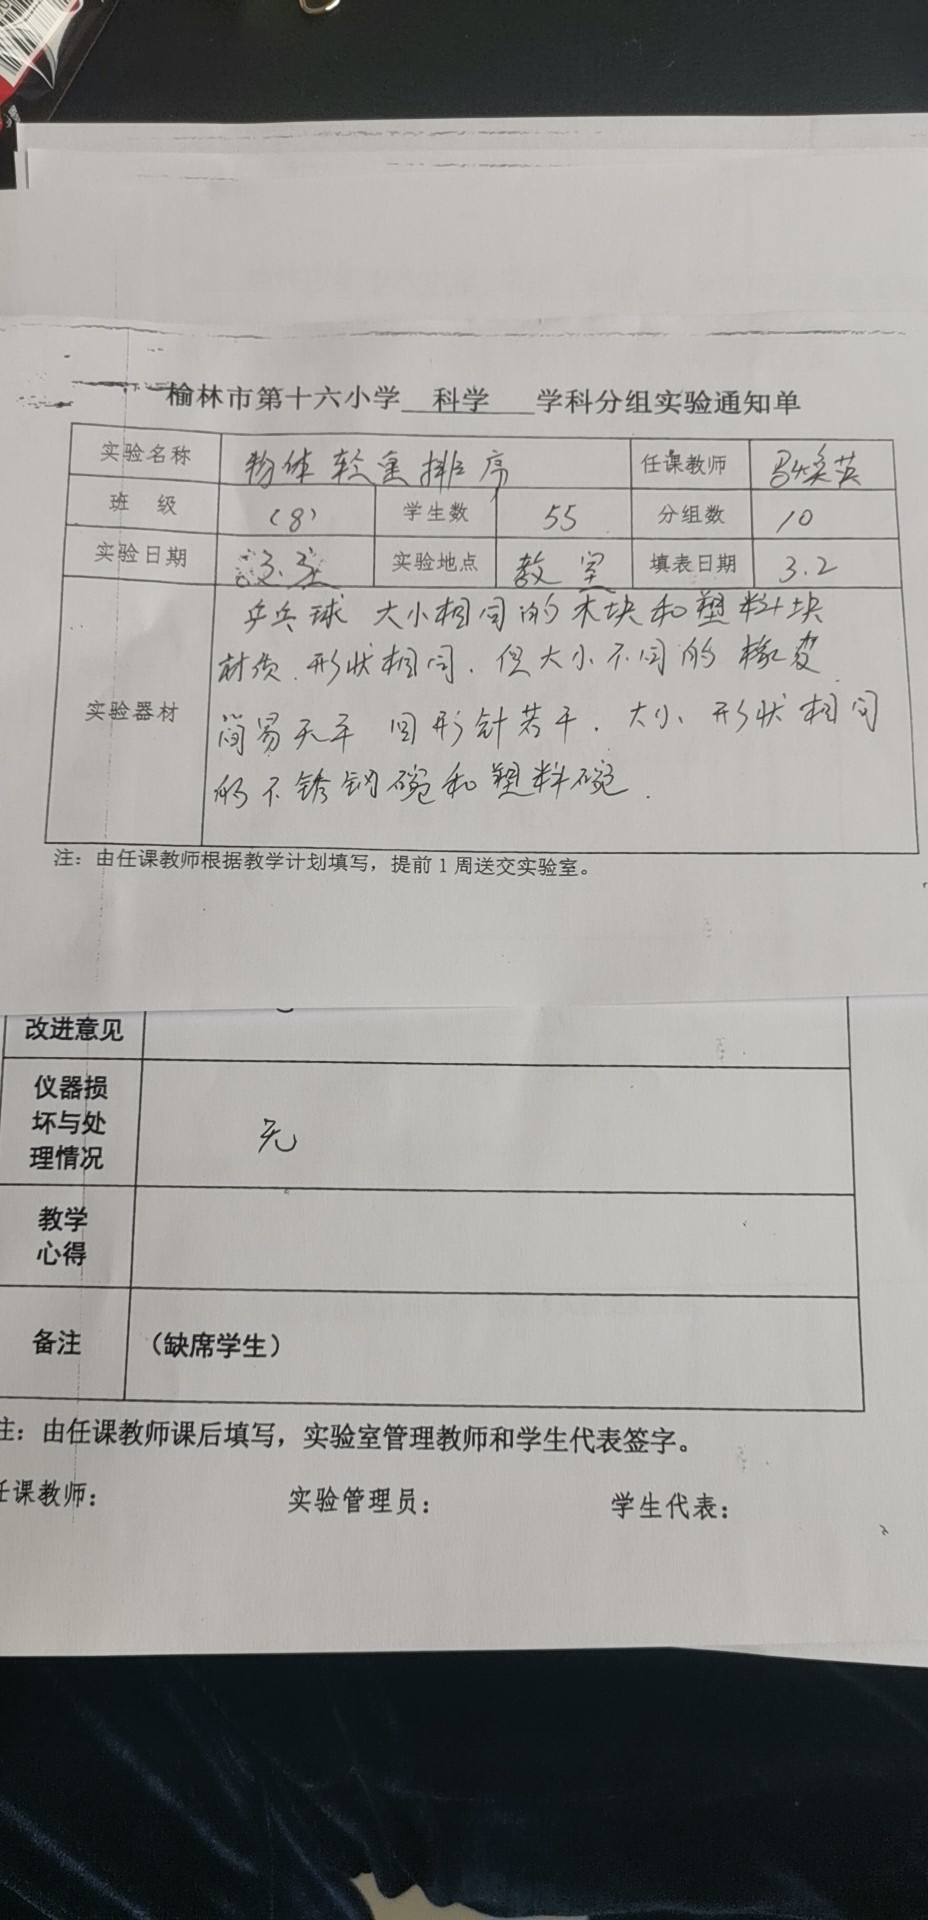 榆林市第十六小学 科学 学科分组实验通知单
实验名称 物体轻重排序 任课教师 焕英
班 级 (8) 学生数 55 分组数 10
实验日期 实验地点 教室 填表日期 3.2
实验器材
乒乓球 大小相同的木块和塑料块
材质.形状相同.但大小不同的橡皮
简易天平 回形针若干.大小、形状相同
的不锈钢碗和塑料碗.
注：由任课教师根据教学计划填写，提前1周送交实验室。
改进意见
仪器损
坏与处
理情况
无
教学
心得
备注 （缺席学生）
注：由任课教师课后填写，实验室管理教师和学生代表签字。
任课教师： 实验管理员： 学生代表：